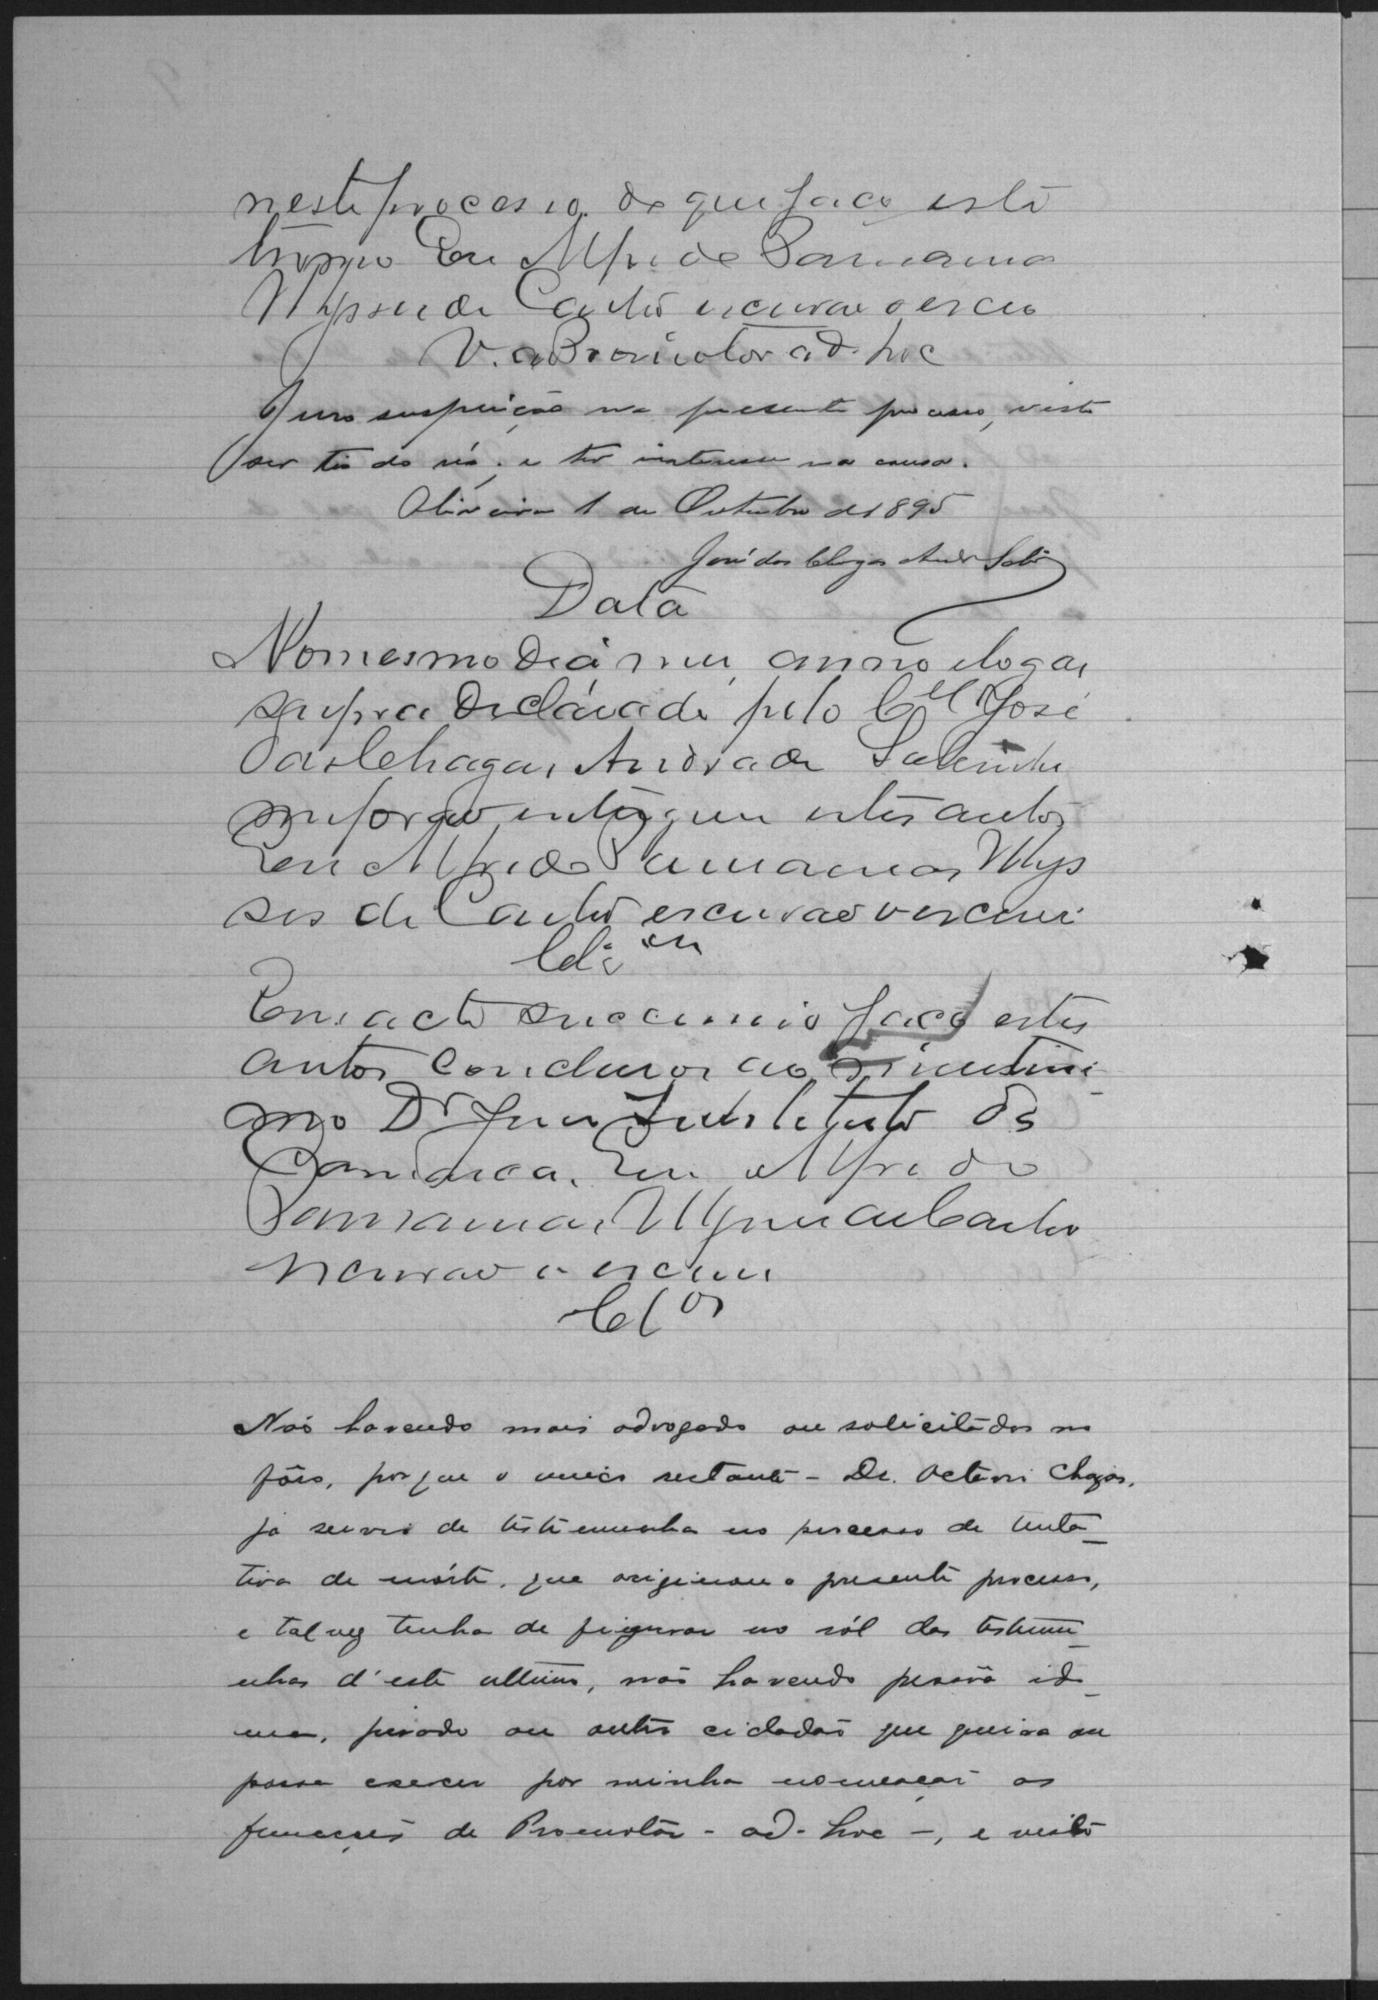 neste processo. do que faço este
termo Eu Alfredo Parnamas
Ulysses de Castro escrivão o escrevi
V. ao Promotor ad-hoc
Juro suspeição no presente processo, visto
ser tio do réo, e ter interesse na causa.
Oliveira 1 de Outubro de 1895
José das Chagas Andr.
Data
No mesmo dia mez, anno e logar
supra declarado pelo Cel José
das Chagas Andrade
me forão entregues estes autos
Eu Alfredo Parnamas Ulys
ses de Castro escrivão o escrevi
Clsam
Em acto successivo faço estes
autos conclusos ao
mo Dr Juiz Substituto da
Comarca. Eu Alfredo
Parnamas Ulysses de Castro
escrivão o escrevi
Clos
Não havendo mais advogado ou solicitador no
fôro, porque o unico restante - Dr. Octavio Chagas,
ja serviu de testemunha no processo de tenta_
tiva de mórte, que originou o presente processo,
e talvez tenha de figurar no ról das testemu_
nhas d'este ultimo, não havendo pessôa ido_
nea, jurado ou outro cidadão que queira ou
possa exercer por minha nomeação as
funcções de Promotor - ad-hoc -, e visto